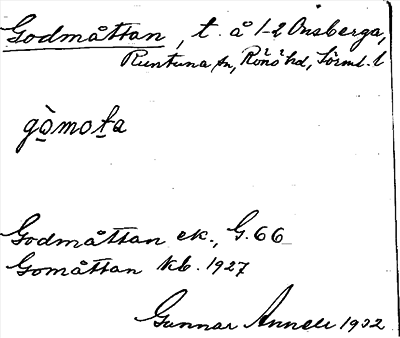 Godmåttan, t. å 1-2 Onsberga,
Runtuna sn, Rönö hd, Sörml. l
gò̱mot̲a
Godmåttan ek., G.66
Gomåttan kb. 1927
Gunnar Annell 1932